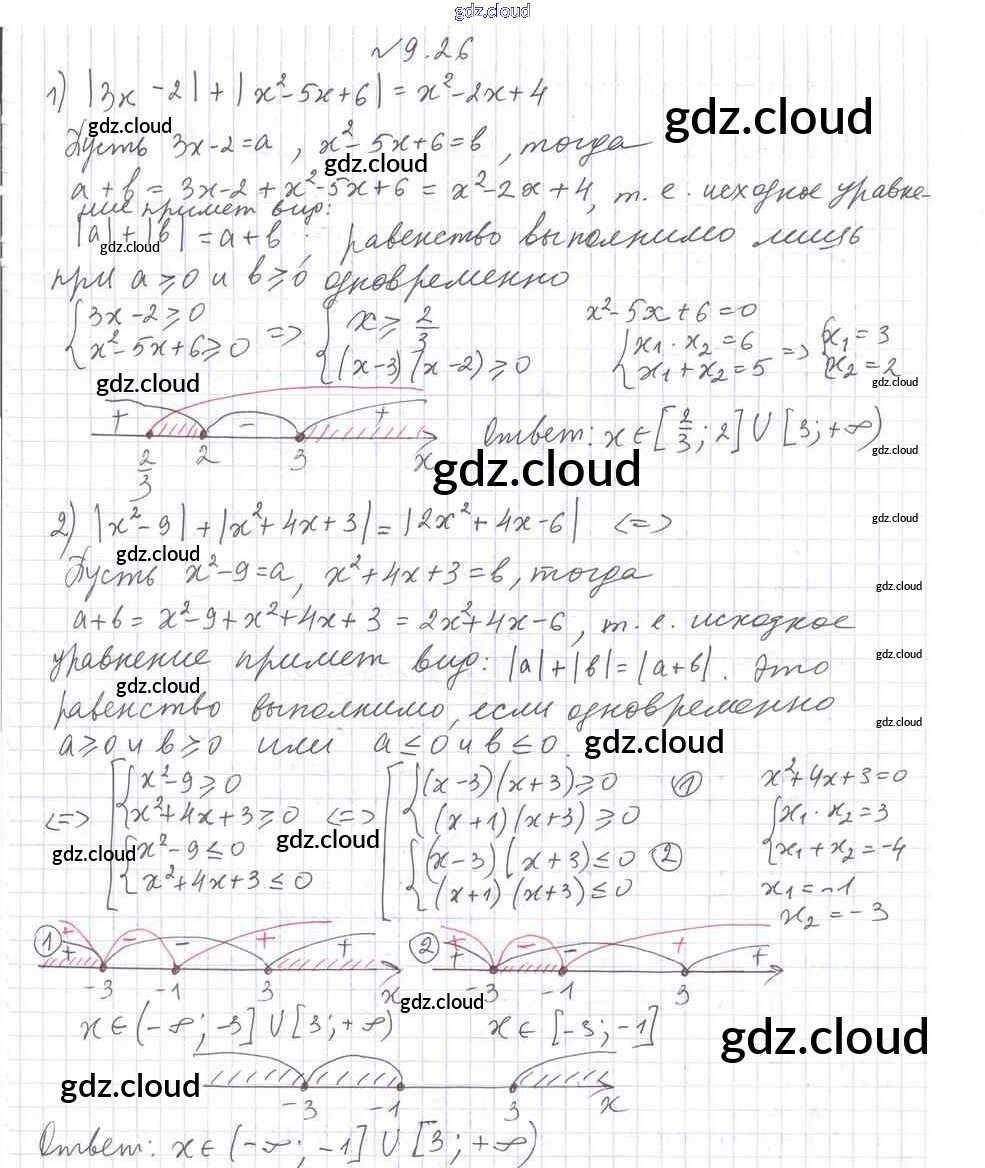 gdz.cloud
№ 9.26
1) |3x - 2| + |x² - 5x + 6| = x² - 2x + 4
gdz.cloud
gdz.cloud
Пусть 3x - 2 = a, x² - 5x + 6 = b, тогда
gdz.cloud
a + b = 3x - 2 + x² - 5x + 6 = x² - 2x + 4, т. е. исходное уравне-
ние примет вид:
|a| + |b| = a + b ; равенство выполнимо лишь
gdz.cloud
при a ⩾ 0 и b ⩾ 0 одновременно
{ 3x - 2 ⩾ 0
{ x² - 5x + 6 ⩾ 0
=> { x ⩾ 2/3
{ (x - 3)(x - 2) ⩾ 0
x² - 5x + 6 = 0
{ x₁ · x₂ = 6
{ x₁ + x₂ = 5
=> { x₁ = 3
{ x₂ = 2
gdz.cloud
gdz.cloud
+ - +
2/3 2 3 x
Ответ: x ∈ [2/3; 2] ∪ [3; +∞)
gdz.cloud
gdz.cloud
2) |x² - 9| + |x² + 4x + 3| = |2x² + 4x - 6| <=>
gdz.cloud
gdz.cloud
Пусть x² - 9 = a, x² + 4x + 3 = b, тогда
gdz.cloud
a + b = x² - 9 + x² + 4x + 3 = 2x² + 4x - 6, т. е. исходное
уравнение примет вид: |a| + |b| = |a + b|. Это
gdz.cloud
gdz.cloud
равенство выполнимо, если одновременно
gdz.cloud
a ⩾ 0 и b ⩾ 0 или a ≤ 0 и b ≤ 0.
gdz.cloud
<=> [ { x² - 9 ⩾ 0
{ x² + 4x + 3 ⩾ 0
{ x² - 9 ≤ 0
{ x² + 4x + 3 ≤ 0
gdz.cloud
gdz.cloud
<=> [ { (x - 3)(x + 3) ⩾ 0 ①
{ (x + 1)(x + 3) ⩾ 0
{ (x - 3)(x + 3) ≤ 0 ②
{ (x + 1)(x + 3) ≤ 0
x² + 4x + 3 = 0
{ x₁ · x₂ = 3
{ x₁ + x₂ = -4
x₁ = -1
x₂ = -3
① + - +
+ - +
-3 -1 3 x
② + - +
+ - +
-3 -1 3
gdz.cloud
x ∈ (-∞; -3] ∪ [3; +∞)
x ∈ [-3; -1]
gdz.cloud
gdz.cloud
-3 -1 3 x
Ответ: x ∈ (-∞; -1] ∪ [3; +∞)